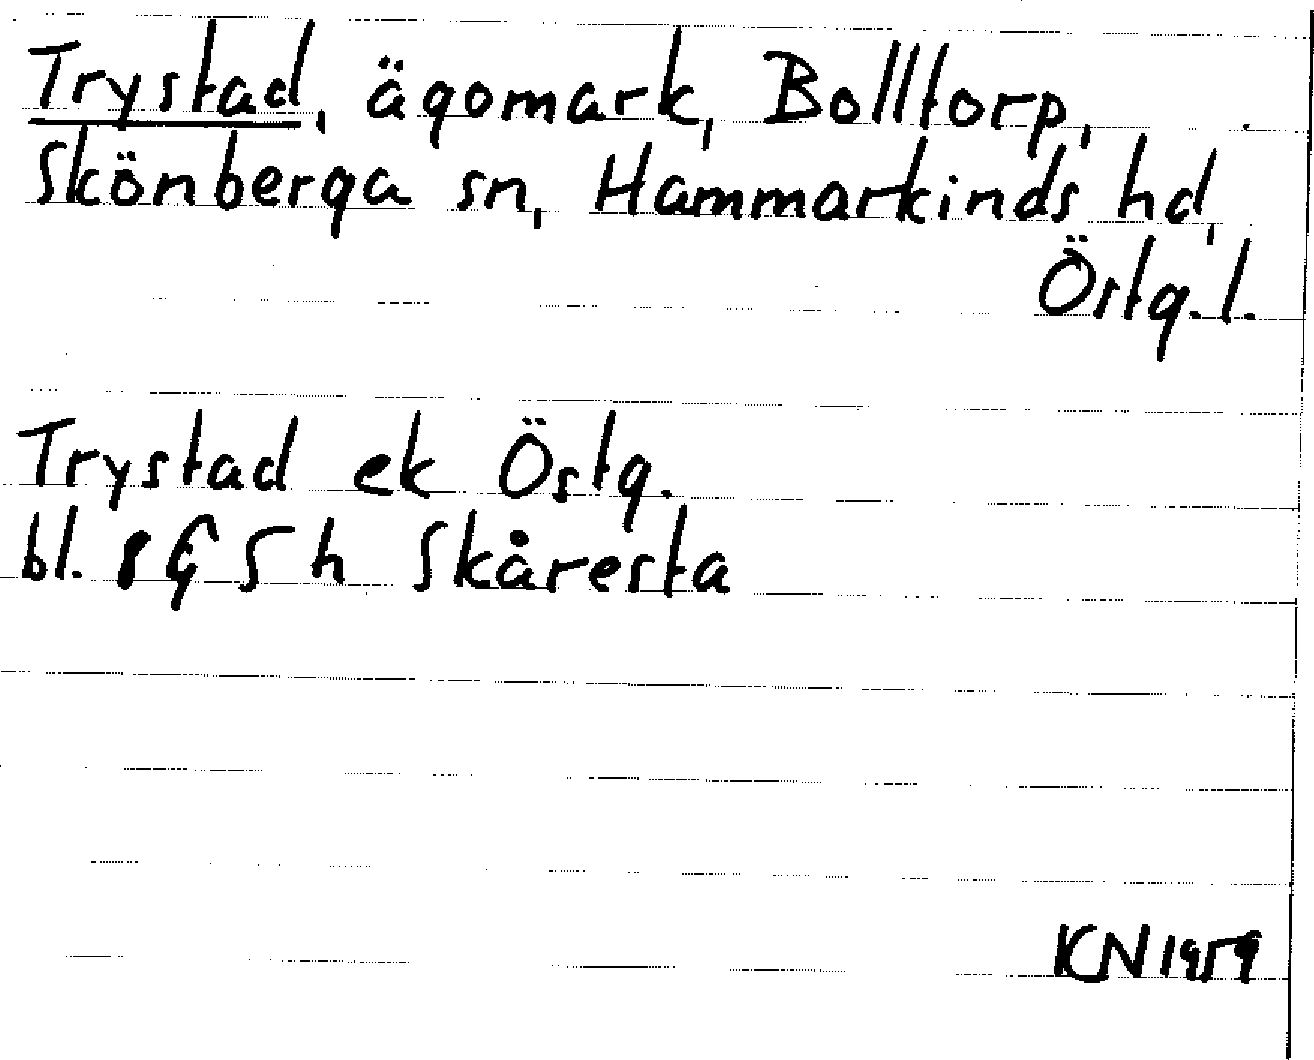 Trystad, ägomark, Bolltorp,
Skönberga sn, Hammarkinds hd,
Östg. l.
Trystad ek Östg.
bl. 8 G 5 h Skåresta
KN 1959